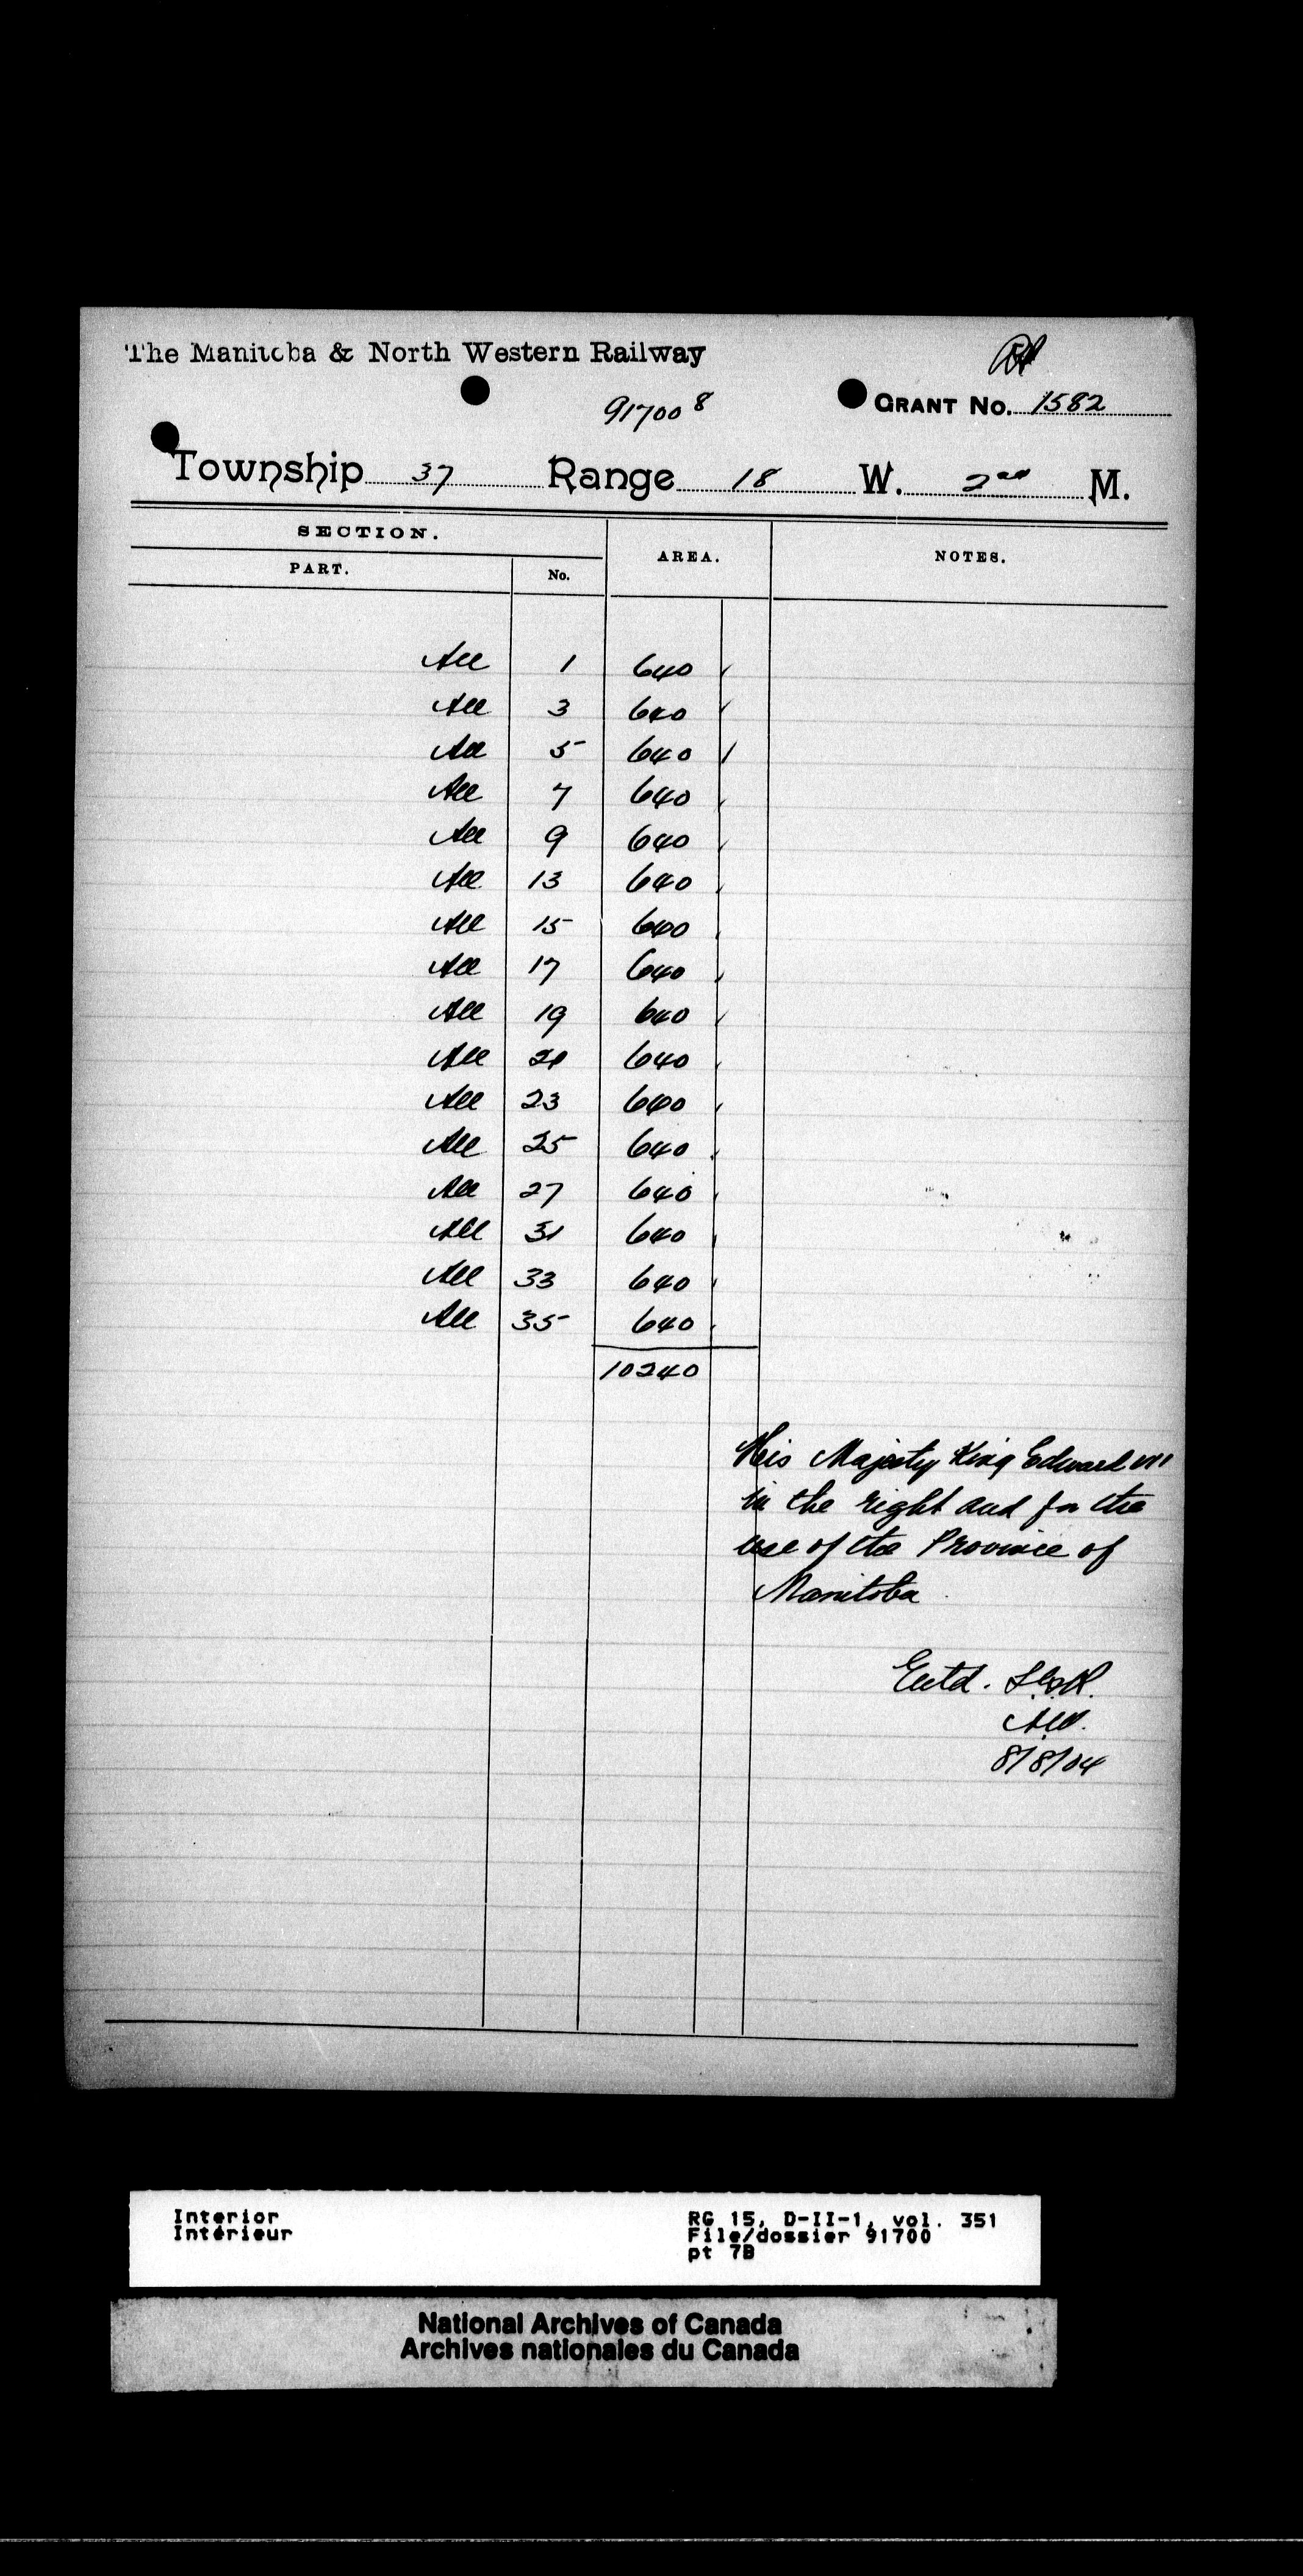 The Manitoba & North Western Railway
91700 8
GRANT No. 1582
Township 37 Range 18 W. 2nd M.
SECTION.
PART. No. AREA. NOTES.
All 1 640
All 3 640
All 5 640
All 7 640
All 9 640
All 13 640
All 15 640
All 17 640
All 19 640
All 21 640
All 23 640
All 25 640
All 27 640
All 31 640
All 33 640
All 35 640
10240
His Majesty King Edward VII
in the right and for the
use of the Province of
Manitoba
Entd.
8/8/04
Interior
Intérieur
RG 15, D-II-1, vol. 351
File/dossier 91700
pt 7B
National Archives of Canada
Archives nationales du Canada